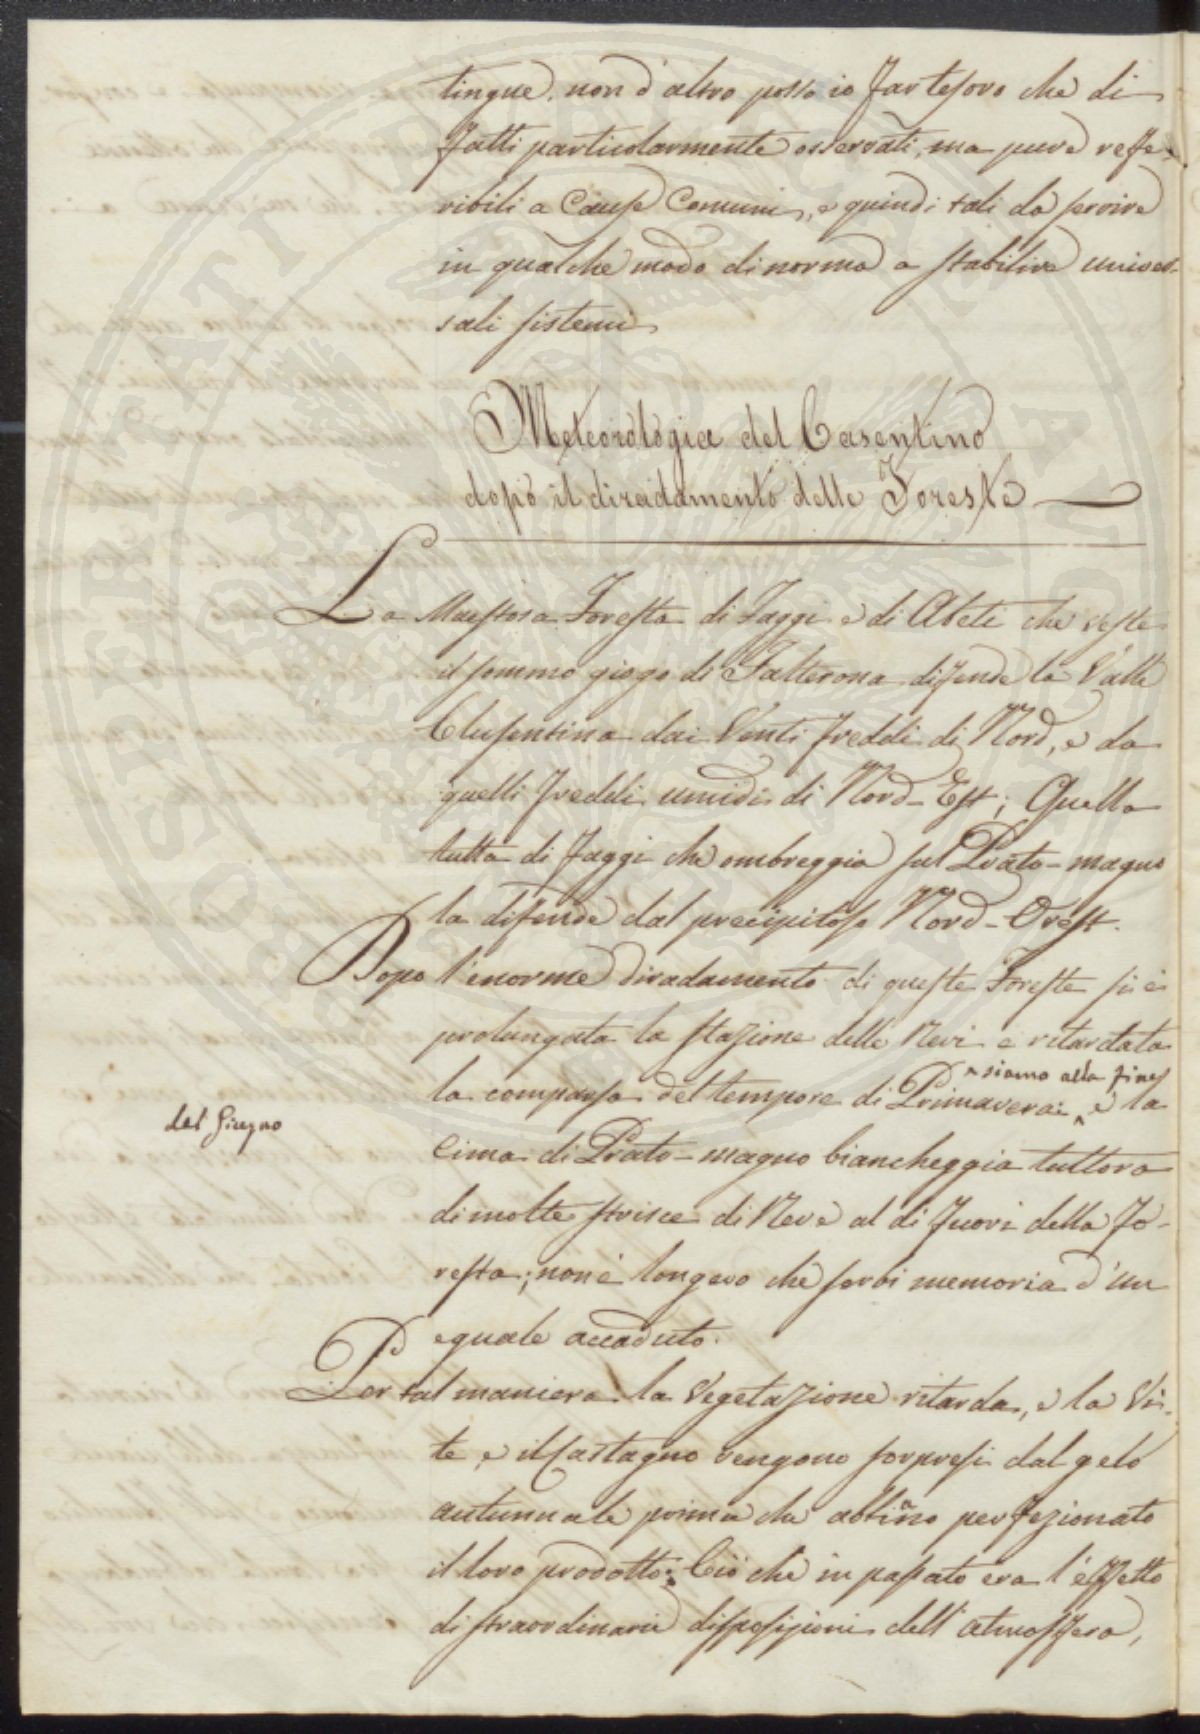 tingue, non d'altro posso io far tesoro che di
fatti particolarmente osservati, ma pure refe-
ribili a Cause Comuni, e quindi tali da servire
in qualche modo di norma a stabilire univer-
sali sistemi
Meteorologia del Casentino
dopo il diradamento delle Foreste
La Maestosa Foresta di Faggi e di Abeti che veste
il sommo giogo di Falterona difende la Valle
Clusentina dai Venti freddi di Nord, e da
quelli freddi umidi di Nord-Est; Quella
tutta di faggi che ombreggia sul Prato-magno
la difende dal precipitoso Nord-Ovest.
Dopo l'enorme diradamento di queste Foreste si è
prolungata la stazione delle Nevi e ritardata
la comparsa del tempore di Primavera: ^ e la
^ siamo alla fine
del Giugno
Cima di Prato-magno biancheggia tuttora
di molte strisce di Neve al di fuori della Fo-
resta; non è longevo che serbi memoria d'un
eguale accaduto.
Per tal maniera la Vegetazione ritarda, e la Vi-
te, e il Castagno vengono sorpresi dal gelo
autunnale prima che abbiano perfezionato
il loro prodotto: Ciò che in passato era l'effetto
di straordinarie disposizioni dell'atmosfera,